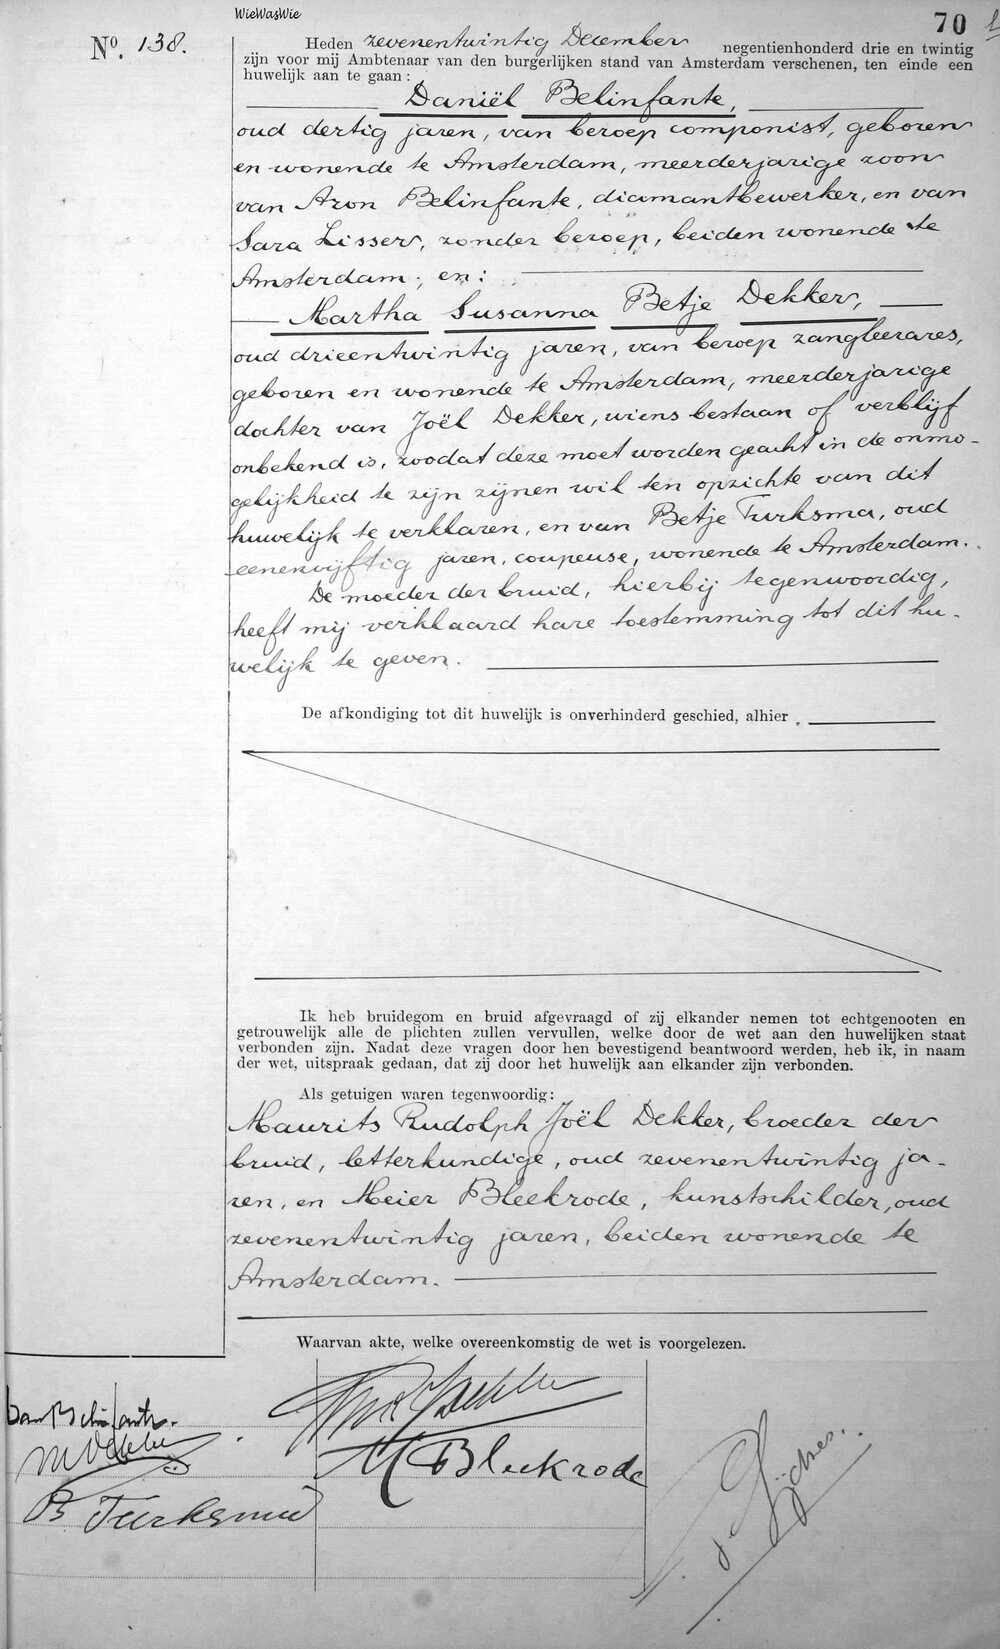 WieWasWie
70
No. 138.
Heden zevenentwintig December negentienhonderd drie en twintig
zijn voor mij Ambtenaar van den burgerlijken stand van Amsterdam verschenen, ten einde een
huwelijk aan te gaan:
Daniël Belinfante,
oud dertig jaren, van beroep componist, geboren
en wonende te Amsterdam, meerderjarige zoon
van Aron Belinfante, diamantbewerker, en van
Sara Lisser, zonder beroep, beiden wonende te
Amsterdam; en:
Martha Susanna Betje Dekker,
oud drieentwintig jaren, van beroep zangleerares,
geboren en wonende te Amsterdam, meerderjarige
dochter van Joël Dekker, wiens bestaan of verblijf
onbekend is, zoodat deze moet worden geacht in de onmo-
gelijkheid te zijn zijnen wil ten opzichte van dit
huwelijk te verklaren, en van Betje Turksma, oud
eenenvijftig jaren, coupeuse, wonende te Amsterdam.
De moeder der bruid, hierbij tegenwoordig,
heeft mij verklaard hare toestemming tot dit hu-
welijk te geven.
De afkondiging tot dit huwelijk is onverhinderd geschied, alhier.
Ik heb bruidegom en bruid afgevraagd of zij elkander nemen tot echtgenooten en
getrouwelijk alle de plichten zullen vervullen, welke door de wet aan den huwelijken staat
verbonden zijn. Nadat deze vragen door hen bevestigend beantwoord werden, heb ik, in naam
der wet, uitspraak gedaan, dat zij door het huwelijk aan elkander zijn verbonden.
Als getuigen waren tegenwoordig:
Maurits Rudolph Joël Dekker, broeder der
bruid, letterkundige, oud zevenentwintig ja-
ren, en Meier Bleekrode, kunstschilder, oud
zevenentwintig jaren, beiden wonende te
Amsterdam.
Waarvan akte, welke overeenkomstig de wet is voorgelezen.
Dan Belinfante.
M Dekker
B Turksma
Dekker
M Bleekrode